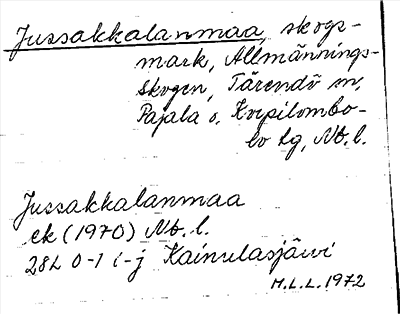 Jussakkalanmaa, skogs-
mark, Allmännings-
skogen, Tärendö sn,
Pajala o. Korpilombo-
lo tg, Nb. l.
Jussakkalanmaa
ek (1970) Nb. l.
28L 0-1 i-j Kainulasjärvi
M.L.L. 1972